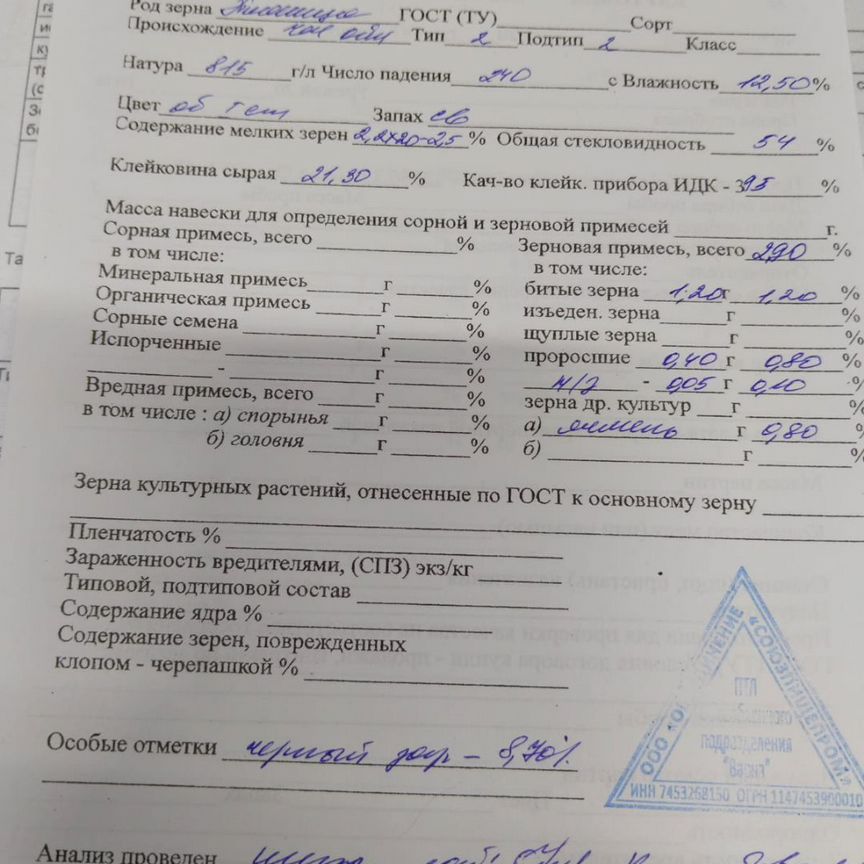 Род зерна Пшеница ГОСТ (ТУ) Сорт
Происхождение Тип 2 Подтип 2 Класс
Натура 815 г/л Число падения 240 с Влажность 12,50%
Цвет об тем Запах св
Содержание мелких зерен 2,2х20-25% Общая стекловидность 54 %
Клейковина сырая 21,30 % Кач-во клейк. прибора ИДК - 3 95 %
Масса навески для определения сорной и зерновой примесей г.
Сорная примесь, всего % Зерновая примесь, всего 2,90 %
в том числе: в том числе:
Минеральная примесь г % битые зерна 1,20 г 1,20 %
Органическая примесь г % изъеден. зерна г %
Сорные семена г % щуплые зерна г %
Испорченные г % проросшие 0,40 г 0,80 %
- г % - 0,05 г 0,10 %
Вредная примесь, всего г % зерна др. культур г %
в том числе : а) спорынья г % а) ячмень г 0,80 %
б) головня г % б) г %
Зерна культурных растений, отнесенные по ГОСТ к основному зерну
Пленчатость %
Зараженность вредителями, (СПЗ) экз/кг
Типовой, подтиповой состав
Содержание ядра %
Содержание зерен, поврежденных
клопом - черепашкой %
Особые отметки черный зар – 8,70%
ООО «СОЮЗПИЩЕПРОМ»
ПТЛ
подразделения
ИНН 7453268150 ОГРН 1147453900010
Анализ проведен